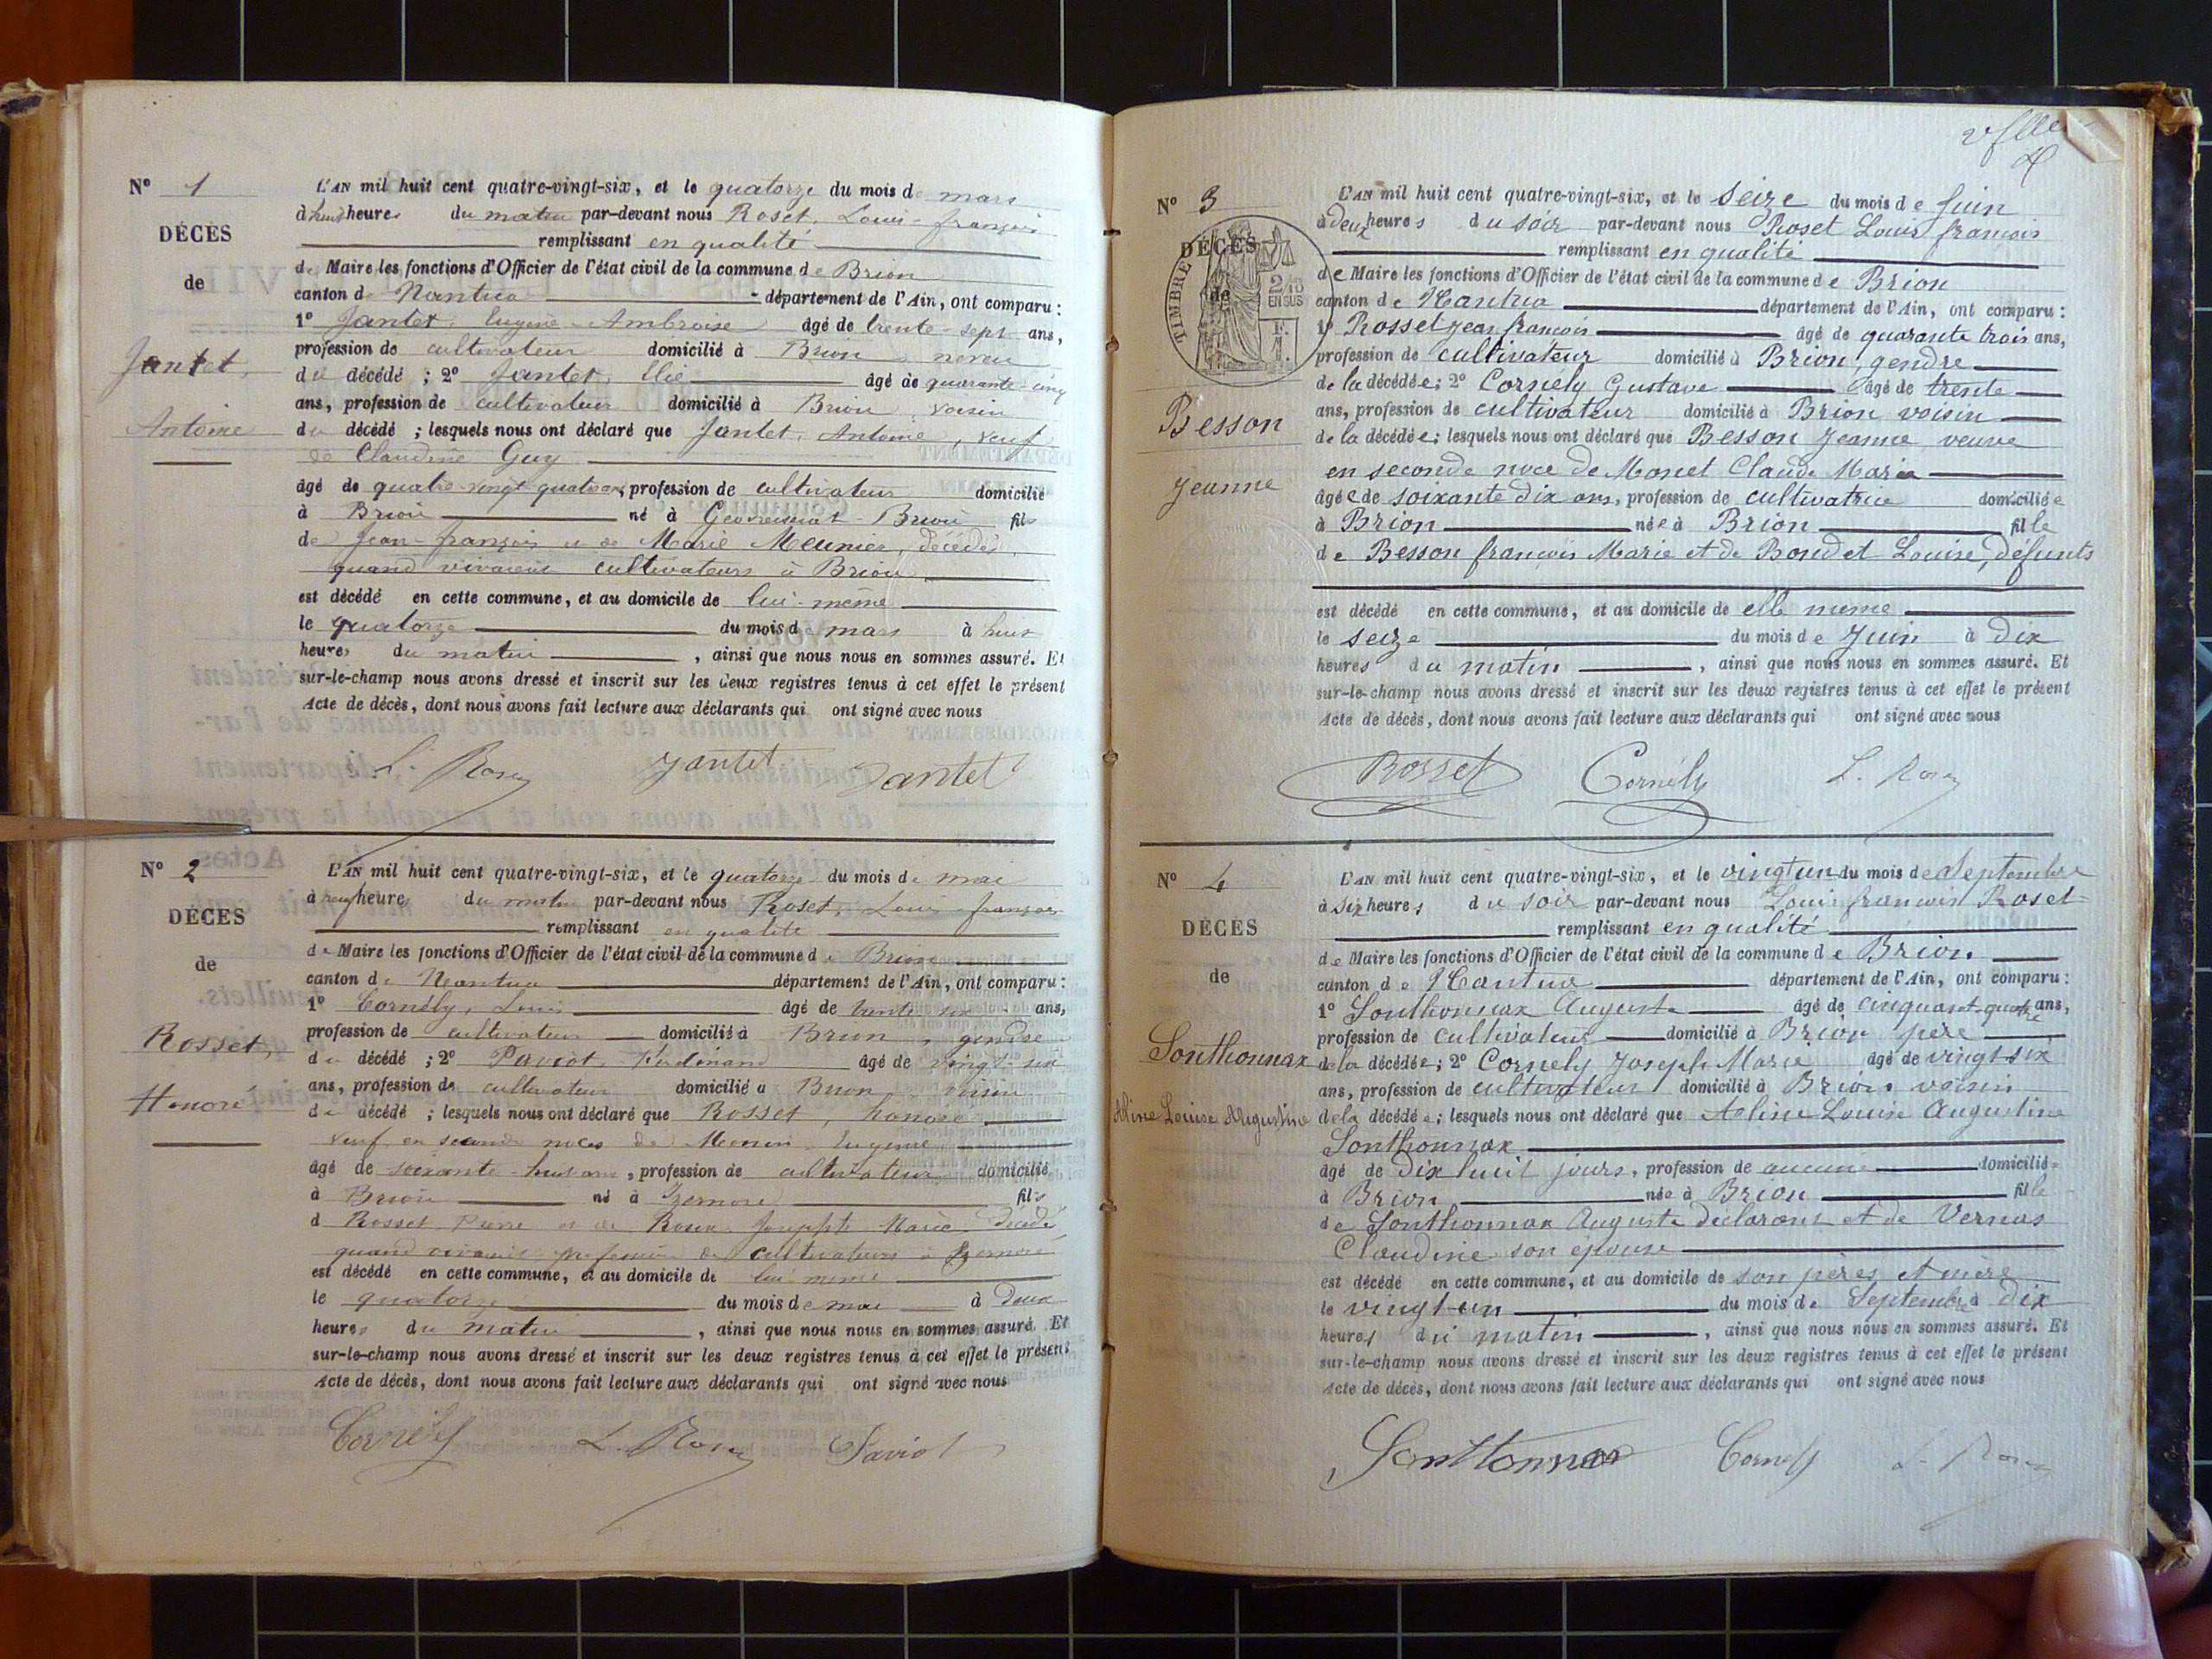 N° 1
DÉCÈS
de
Jantet,
Antoine
L'AN mil huit cent quatre-vingt-six, et le quatorze du mois de mars
à huit heures du matin par-devant nous Roset, Louis-françois
remplissant en qualité
de Maire les fonctions d'Officier de l'état civil de la commune de Brion
canton de Nantua département de l'Ain, ont comparu :
1° Jantet, Eugène-Ambroise âgé de trente-sept ans,
profession de cultivateur domicilié à Brion neveu
du décédé ; 2° Jantet, Elie âgé de quarante-cinq
ans, profession de cultivateur domicilié à Brion, voisin
du décédé ; lesquels nous ont déclaré que Jantet, Antoine, veuf
de Claudine Guy
âgé de quatre-vingt-quatre, profession de cultivateur domicilié
à Brion né à Geovreissiat-Brion fils
de Jean-françois et de Marie Meunier, décédés,
quand vivaient cultivateurs à Brion
est décédé en cette commune, et au domicile de lui-même
le quatorze du mois de mars à huit
heures du matin, ainsi que nous nous en sommes assuré. Et
sur-le-champ nous avons dressé et inscrit sur les deux registres tenus à cet effet le présent
Acte de décès, dont nous avons fait lecture aux déclarants qui ont signé avec nous
L. Roset Jantet Jantet
N° 2
DÉCÈS
de
Rosset,
Honoré
L'AN mil huit cent quatre-vingt-six, et le quatorze du mois de mai
à neuf heures du matin par-devant nous Roset, Louis françois
remplissant en qualité
de Maire les fonctions d'Officier de l'état civil de la commune de Brion
canton de Nantua département de l'Ain, ont comparu :
1° Cornély, Louis âgé de trente six ans,
profession de cultivateur domicilié à Brion, gendre
du décédé ; 2° Paviot, Ferdinand âgé de vingt-six
ans, profession de cultivateur domicilié à Brion, voisin
du décédé ; lesquels nous ont déclaré que Rosset, honoré
veuf en seconde noces de Eugénie
âgé de soixante-huit ans, profession de cultivateur domicilié
à Brion né à Izernore fils
d Rosset Pierre et de Josephte Marie décédé
quand vivaient profession de cultivateurs à Izernore
est décédé en cette commune, et au domicile de lui-même
le quatorze du mois de mai à deux
heures du matin, ainsi que nous nous en sommes assuré. Et
sur-le-champ nous avons dressé et inscrit sur les deux registres tenus à cet effet le présent
Acte de décès, dont nous avons fait lecture aux déclarants qui ont signé avec nous
Cornély L. Roset Paviot
N° 3
DÉCÈS
de
TIMBRE
2/10
EN SUS
Besson
Jeanne
L'AN mil huit cent quatre-vingt-six, et le seize du mois de juin
à deux heures du soir par-devant nous Roset Louis francois
remplissant en qualité
de Maire les fonctions d'Officier de l'état civil de la commune de Brion
canton de Nantua département de l'Ain, ont comparu :
1° Rosset Jean francois âgé de quarante trois ans,
profession de cultivateur domicilié à Brion, gendre
de la décédée ; 2° Cornély Gustave âgé de trente
ans, profession de cultivateur domicilié à Brion voisin
de la décédée ; lesquels nous ont déclaré que Besson Jeanne veuve
en seconde noce de Monet Claude Marie
âgée de soixante dix ans, profession de cultivatrice domiciliée
à Brion née à Brion fille
de Besson francois Marie et de Bondet Louise, défunts
est décédé en cette commune, et au domicile de elle même
le seize du mois de Juin à dix
heures du matin, ainsi que nous nous en sommes assuré. Et
sur-le-champ nous avons dressé et inscrit sur les deux registres tenus à cet effet le présent
Acte de décès, dont nous avons fait lecture aux déclarants qui ont signé avec nous
Rosset Cornély L. Roset
N° 4
DÉCÈS
de
Sonthonnax
Aline Louise Augustine
L'AN mil huit cent quatre-vingt-six, et le vingt un du mois de Septembre
à six heures du soir par-devant nous Louis francois Roset
remplissant en qualité
de Maire les fonctions d'Officier de l'état civil de la commune de Brion
canton de Nantua département de l'Ain, ont comparu :
1° Sonthonnax Auguste âgé de cinquant-quatre ans,
profession de cultivateur domicilié à Brion père
de la décédée ; 2° Cornely Joseph Marie âgé de vingt six
ans, profession de cultivateur domicilié à Brion voisin
de la décédée ; lesquels nous ont déclaré que Aline Louise Augustine
Sonthonnax
âgé de dix huit jours, profession de aucune domiciliée
à Brion née à Brion fille
de Sonthonnax Auguste déclarant et de Vernas
Claudine son épouse
est décédé en cette commune, et au domicile de son pères et mère
le vingt-un du mois de Septembre à dix
heures du matin, ainsi que nous nous en sommes assuré. Et
sur-le-champ nous avons dressé et inscrit sur les deux registres tenus à cet effet le présent
Acte de décès, dont nous avons fait lecture aux déclarants qui ont signé avec nous
Sonthonnax Cornely L. Roset